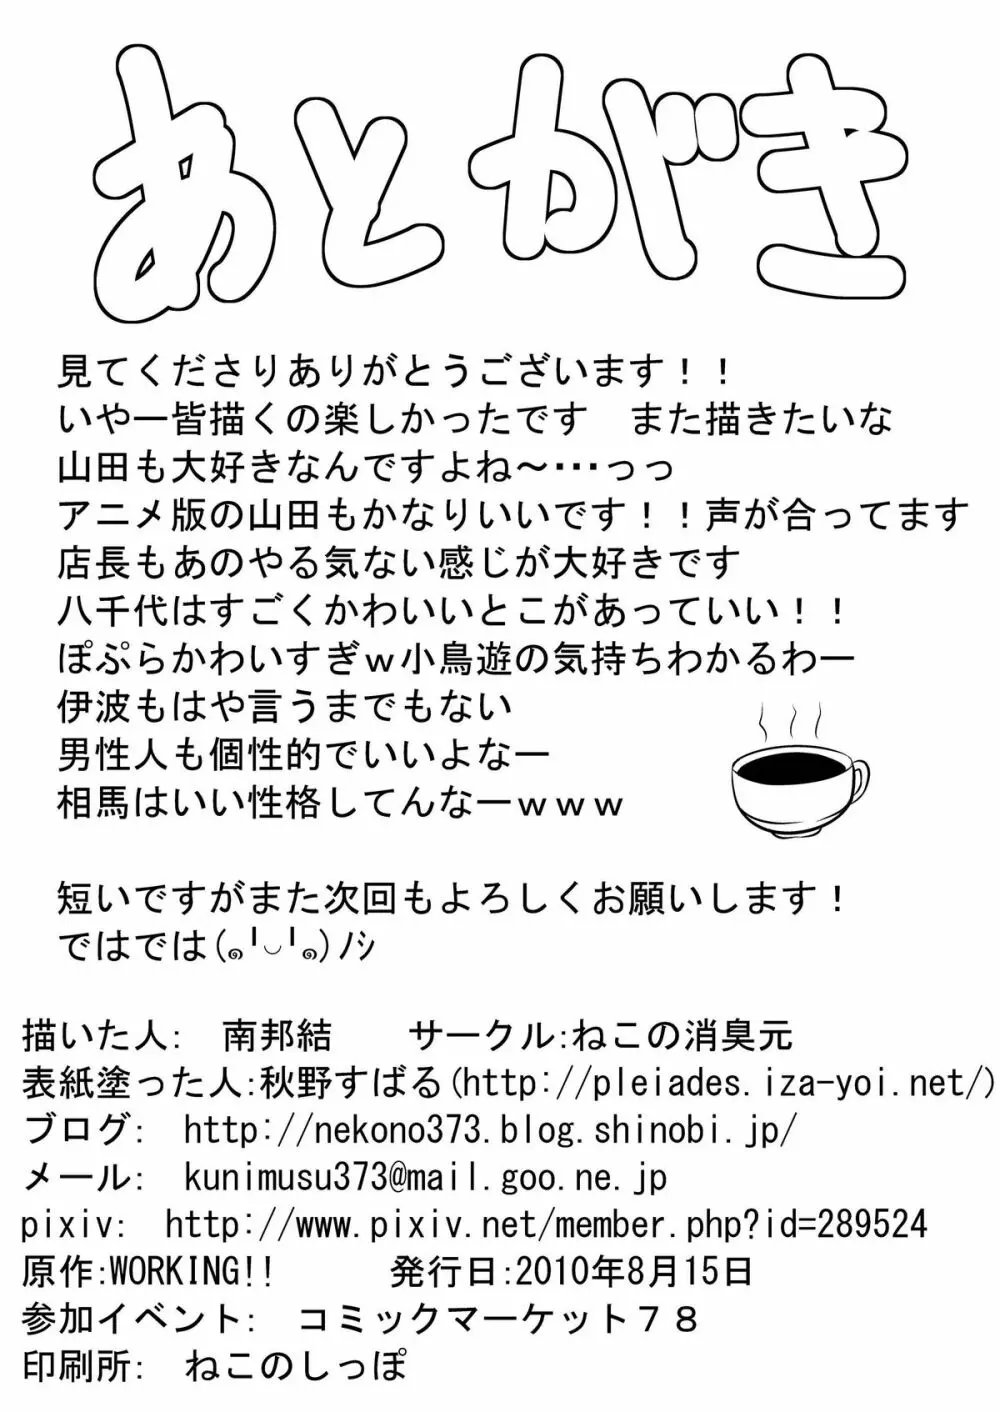 あとがき
見てくださりありがとうございます！！
いやー皆描くの楽しかったです　また描きたいな
山田も大好きなんですよね～・・・っっ
アニメ版の山田もかなりいいです！！声が合ってます
店長もあのやる気ない感じが大好きです
八千代はすごくかわいいとこがあっていい！！
ぽぷらかわいすぎｗ小鳥遊の気持ちわかるわー
伊波もはや言うまでもない
男性人も個性的でいいよなー
相馬はいい性格してんなーｗｗｗ
短いですがまた次回もよろしくお願いします！
ではでは(๑╹◡╹๑)ﾉｼ
描いた人:　南邦結　　サークル:ねこの消臭元
表紙塗った人:秋野すばる(http://pleiades.iza-yoi.net/)
ブログ:　http://nekono373.blog.shinobi.jp/
メール:　kunimusu373@mail.goo.ne.jp
pixiv:　http://www.pixiv.net/member.php?id=289524
原作:WORKING!!　　　発行日:2010年8月15日
参加イベント:　コミックマーケット７８
印刷所:　ねこのしっぽ